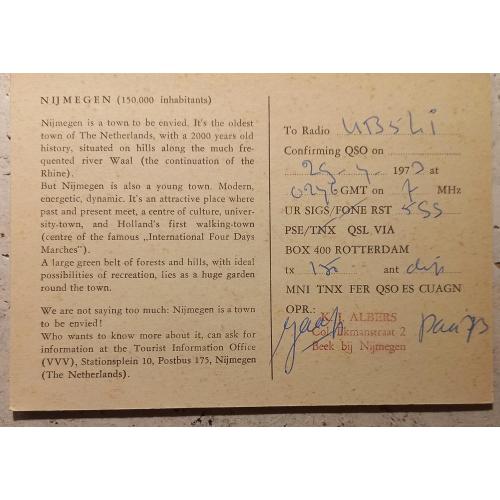 NIJMEGEN (150.000 inhabitants)
Nijmegen is a town to be envied. It's the oldest
town of The Netherlands, with a 2000 years old
history, situated on hills along the much fre-
quented river Waal (the continuation of the
Rhine).
But Nijmegen is also a young town. Modern,
energetic, dynamic. It's an attractive place where
past and present meet, a centre of culture, univer-
sity-town, and Holland's first walking-town
(centre of the famous „International Four Days
Marches”).
A large green belt of forests and hills, with ideal
possibilities of recreation, lies as a huge garden
round the town.
We are not saying too much: Nijmegen is a town
to be envied!
Who wants to know more about it, can ask for
information at the Tourist Information Office
(VVV), Stationsplein 10, Postbus 175, Nijmegen
(The Netherlands).
To Radio UB5LI
Confirming QSO on
197 at
0246 GMT on 7 MHz
UR SIGS/FONE RST 599
PSE/TNX QSL VIA
BOX 400 ROTTERDAM
tx 150 ant dip
MNI TNX FER QSO ES CUAGN
OPR.:
ALBERS
2
Beek bij Nijmegen